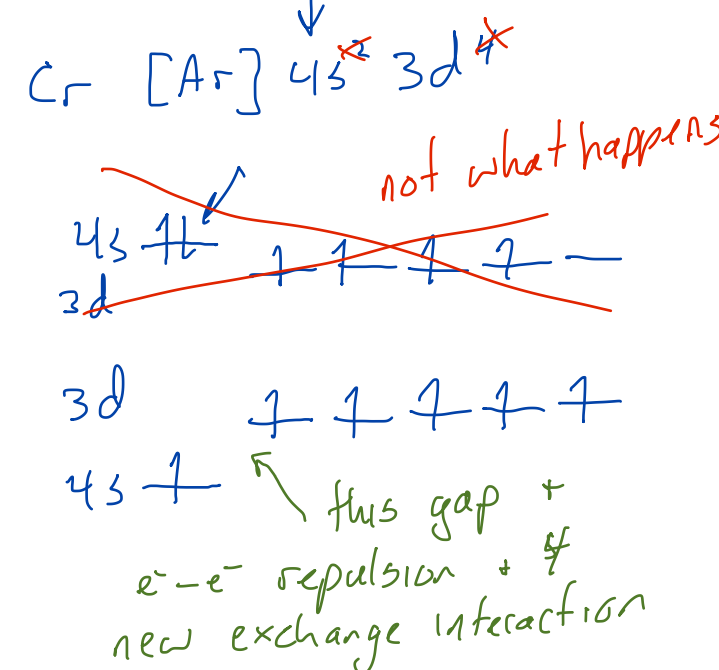 Cr [Ar] 4s² 3d⁴
not what happens
4s
3d
3d
4s
this gap +
e⁻ – e⁻ repulsion + 4
new exchange interaction